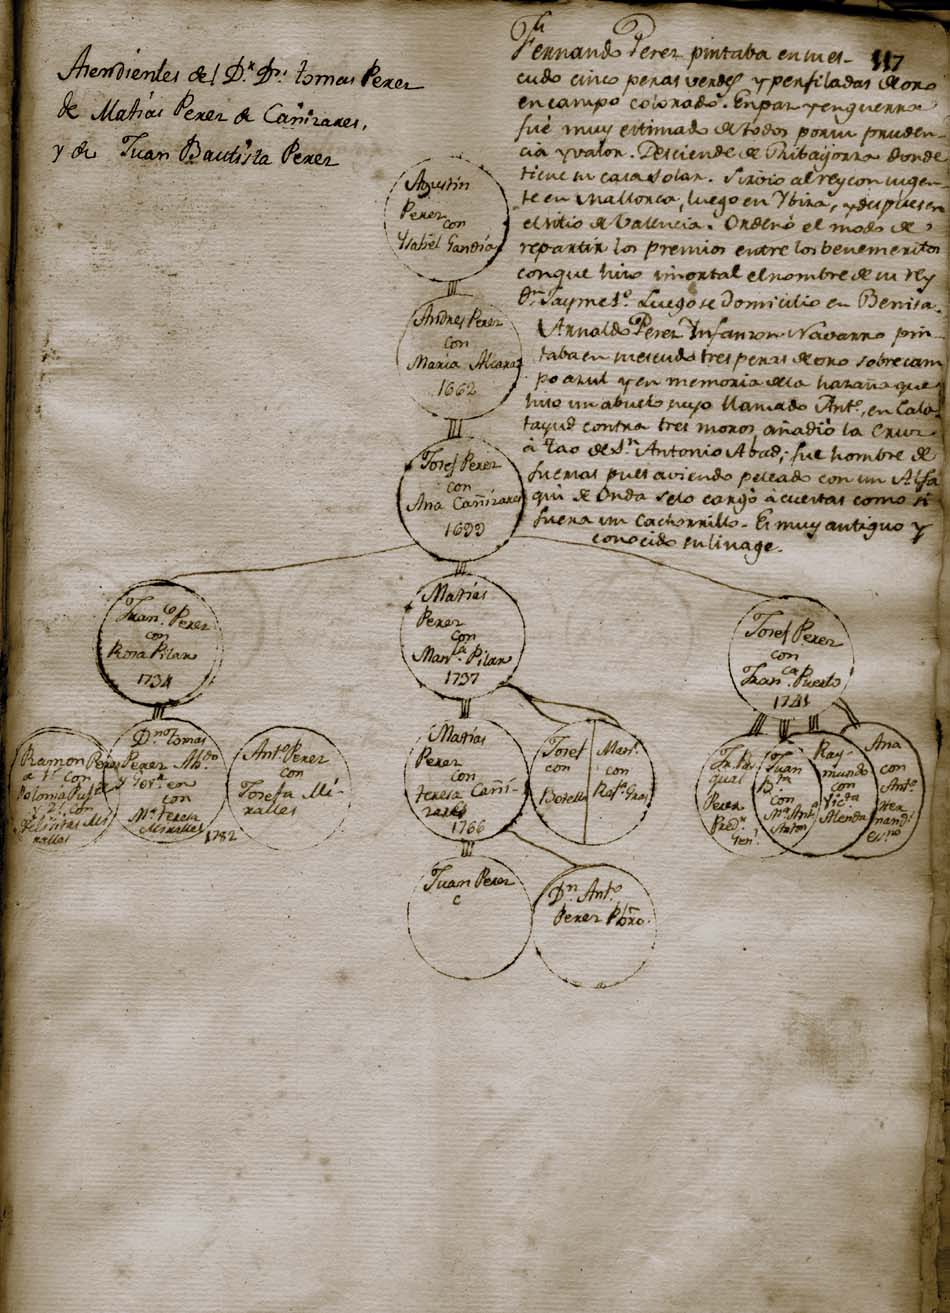 Asendientes del D.r D.n tomas Perez
de Matías Perez de Cañizares,
y de Juan Bautista Perez
117
Fernando Perez pintaba en su es-
cudo cinco peras verdes y perfiladas de oro
en campo colorado. En paz y en guerra
fué muy estimado de todos por su pruden-
cia y valor. Desciende de Ribagorza donde
tiene su casa solar. Sirvio al rey con su gen-
te en Mallorca, luego en Ybiza, y despues en
el sitio de Valencia. Ordenó el modo de
repartir los premios entre los benemeritos
con que hizo imortal el nombre de su rey
D.n Jayme 1.º Luego se Domicilio en Benisa.
Arnaldo Perez Infanzon Navarro pin-
taba en su escudo tres peras de oro sobre cam
po azul y en memoria de la hazaña que
hizo un abuelo suyo llamado Ant.º, en Cala-
tayud contra tres moros, añadió la Cruz
ó Tao de S.n Antonio Abad; fue hombre de
fuerzas pues aviendo peleado con un Alfa
qui de Onda se lo cargó à cuestas como si
fuera un Cachorrillo. Es muy antiguo y
conocido su linage.
Agustín
Perez
con
Ysabel Gandía
Andres Perez
con
Maria Alcaraz
1662
Josef Perez
con
Ana Cañizares
1699
Fran.co Perez
con
Rosa Pilar
1734
Matías
Perez
con
Man.la Pilar
1737
Josef Perez
con
Fran.ca Puerto
1741
Ramon Perez
a 1.ª con
Polonia
2.ª con
Mi
ralles
D.n tomas
Perez Ab.do
y
con
M.a teresa
Miralles
1782
Ant.º Perez
con
Josefa Mi-
ralles
Matías
Perez
con
teresa Cañi-
zares
1766
Josef
con
Botella
Man.
con
Fr. Pas
qual
Perez
Pred.r
Gen.l
Juan
B.
con
M.a Ant.a
Ray-
mundo
con
Ana
con
Ant.º
Her
nandi
Juan Perez
c
D.n Ant.º
Perez Pbro.